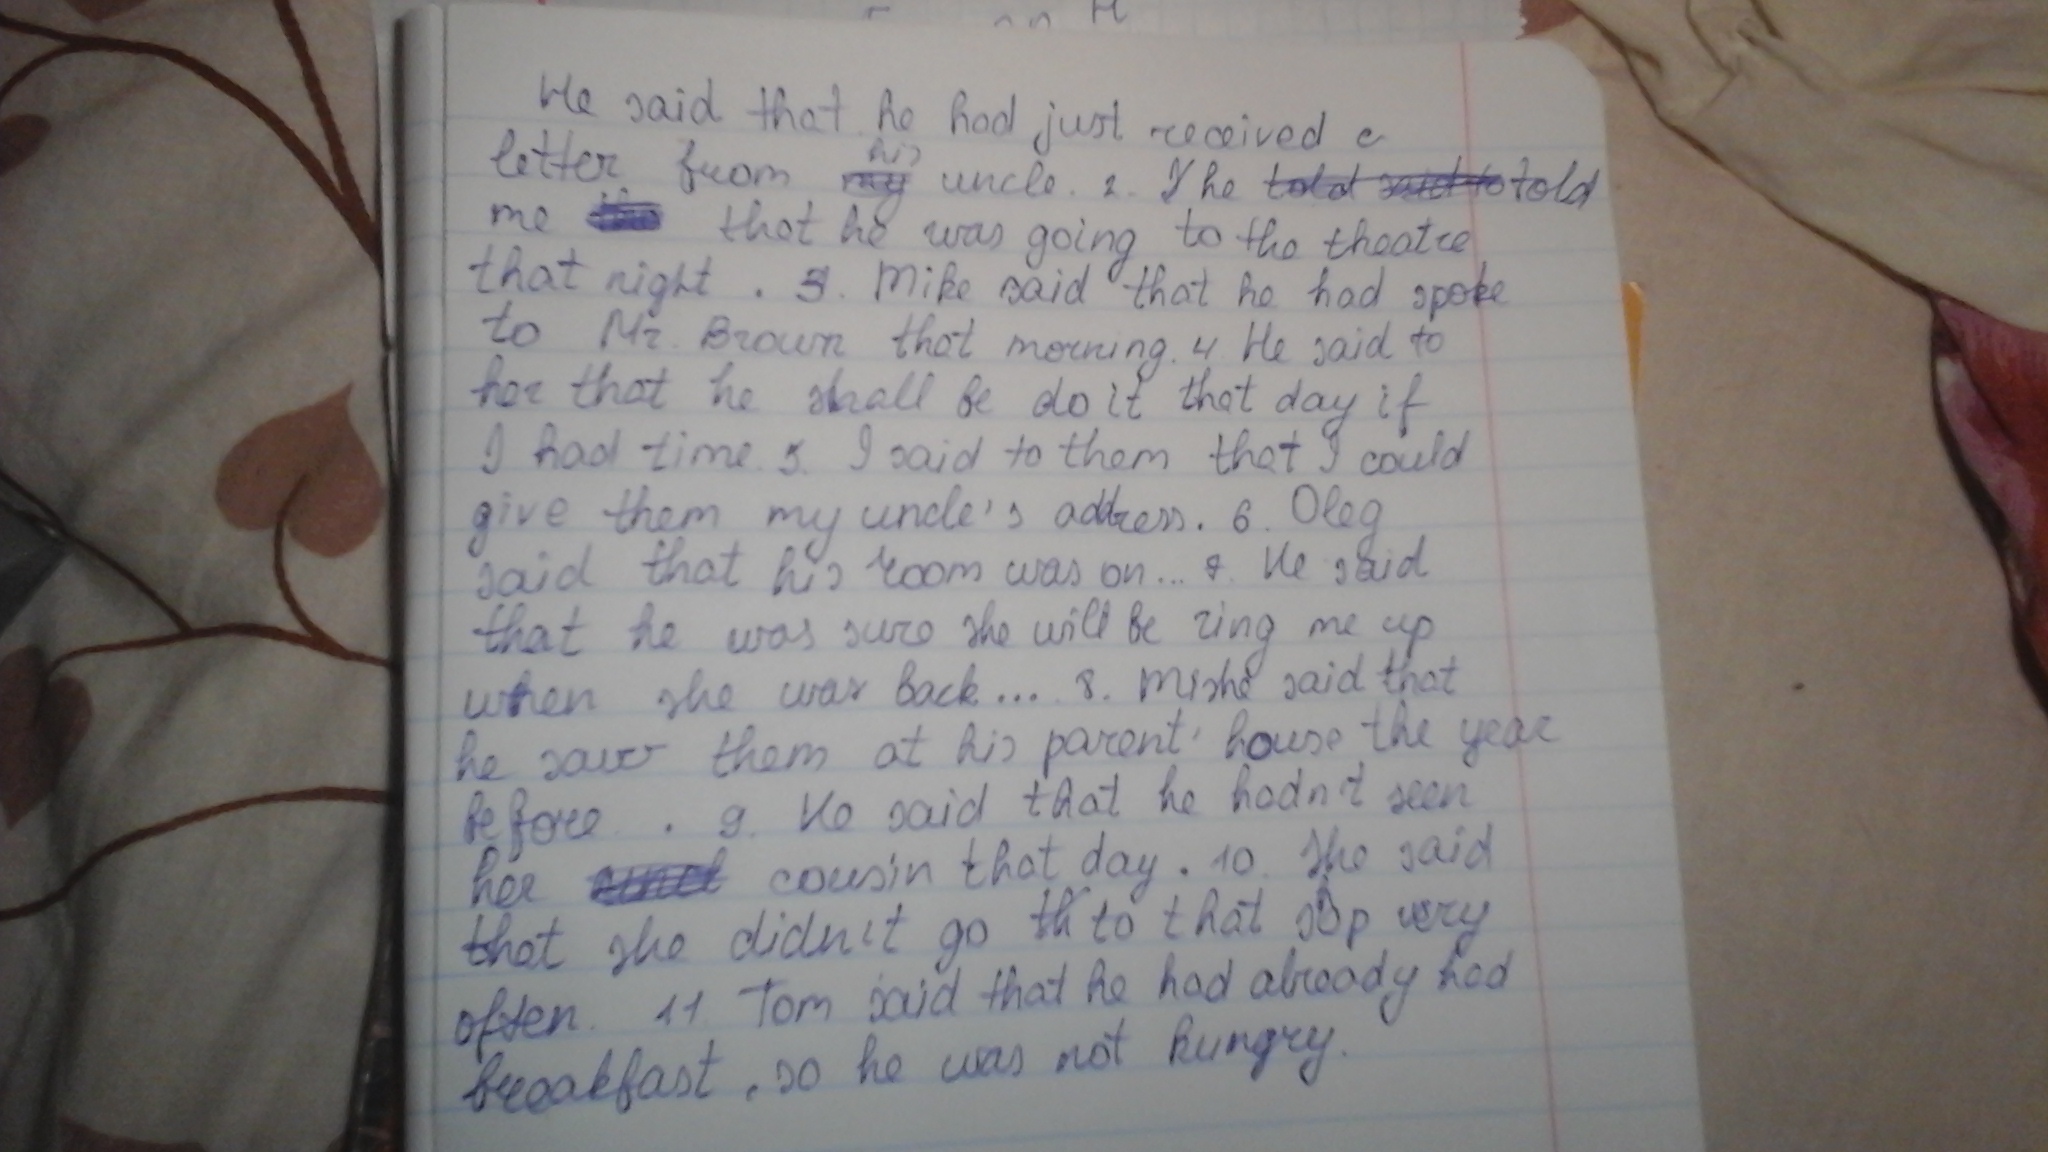 He said that he had just received a
letter from his uncle. 2. The told
me that he was going to the theatre
that night. 3. Mike said that he had spoke
to Mr. Brown that morning. 4. He said to
her that he shall be do it that day if
I had time. 5. I said to them that I could
give them my uncle's address. 6. Oleg
said that his room was on... 7. He said
that he was sure she will be ring me up
when she was back.... 8. Mishe said that
he saw them at his parent' house the year
before. 9. He said that he hadn't seen
her cousin that day. 10. She said
that she didn't go to that shop very
often. 11. Tom said that he had already had
breakfast, so he was not hungry.